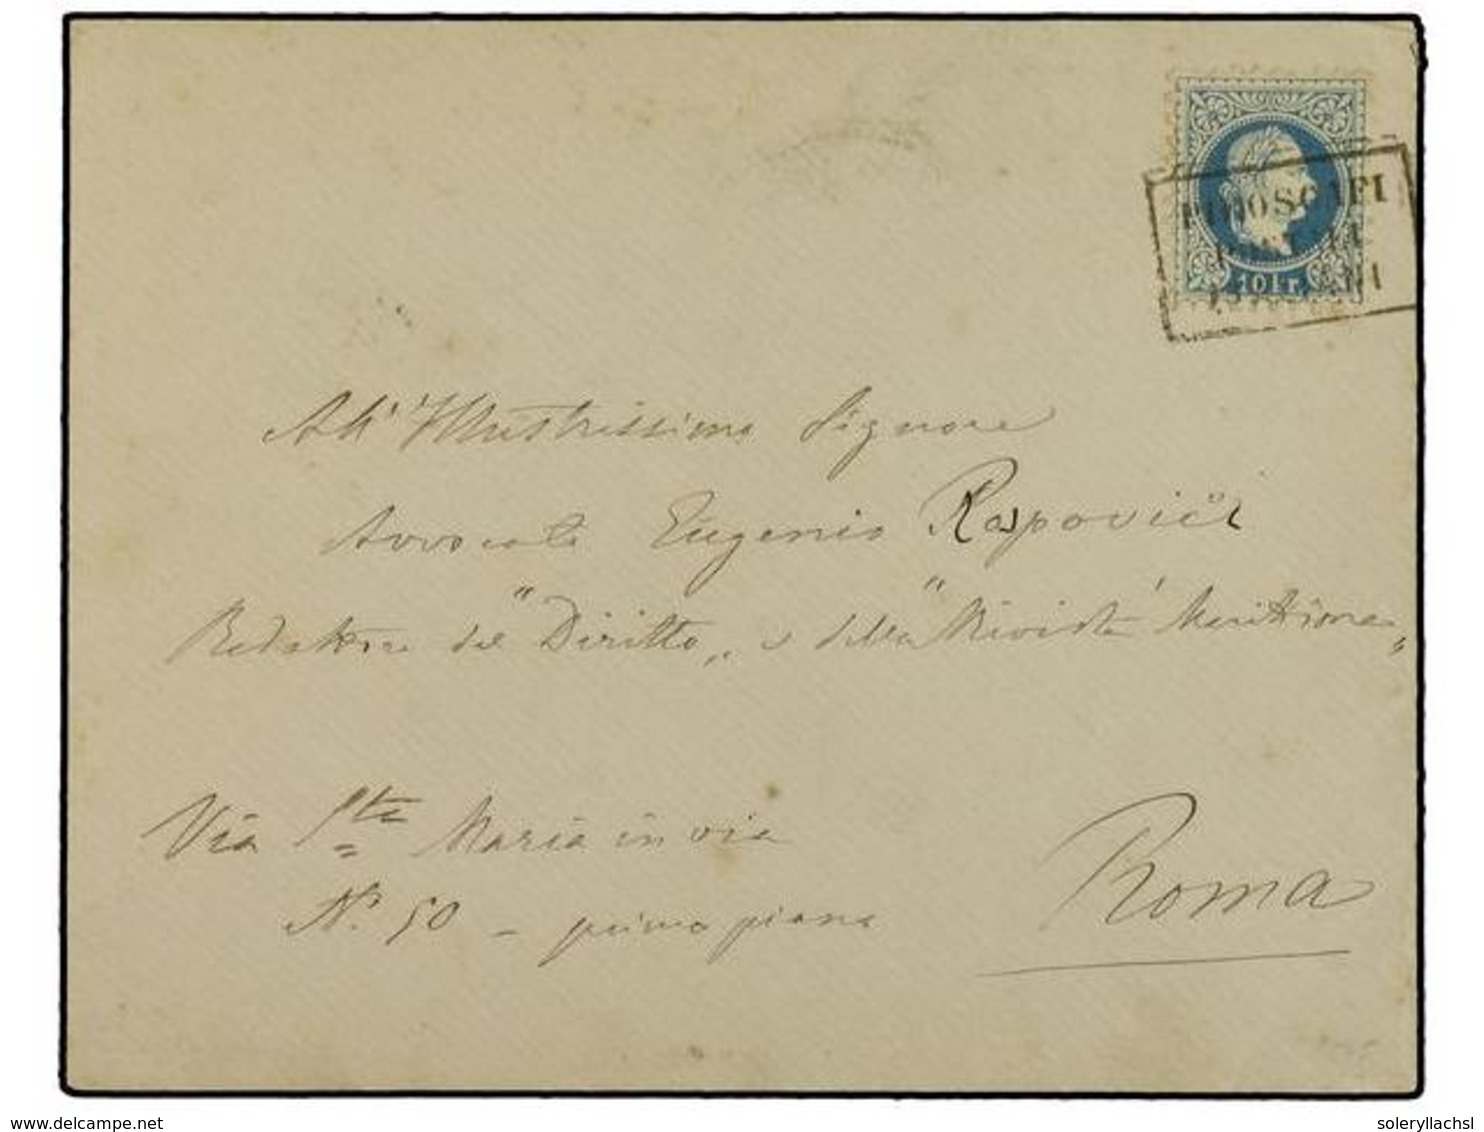 PIROSCAFI
POSTALI
ITALIANI
10 kr.
All' Illustrissimo Signore
Avvocato Eugenio Raspovići
Redattore del "Diritto„ e della "Rivista Marittima„
Via Sta Maria in via
No. 50 - primo piano
Roma
www.delcampe.net
soleryllachsl